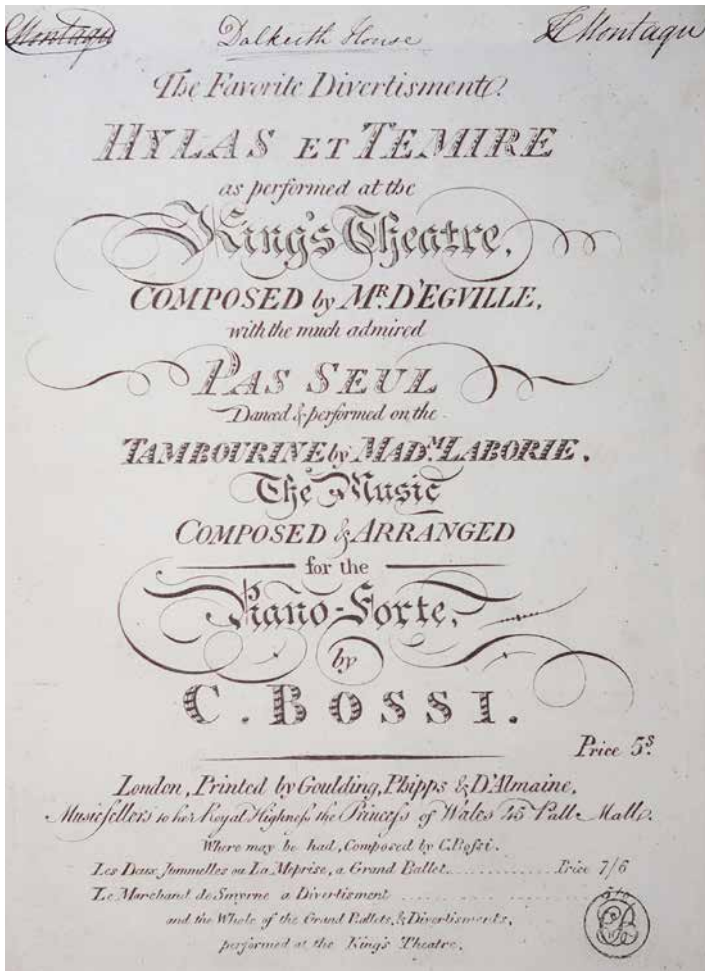 Montagu Dalkeith House H Montagu
The Favorite Divertisment,
HYLAS ET TEMIRE
as performed at the
King's Theatre,
COMPOSED by Mr. D'EGVILLE,
with the much admired
PAS SEUL
Danced & performed on the
TAMBOURINE by MADM. LABORIE.
The Music
COMPOSED & ARRANGED
for the
Piano-Forte,
by
C. BOSSI.
Price 5s.
London, Printed by Goulding, Phipps & D'Almaine,
Musicsellers to her Royal Highneſs the Princeſs of Wales 45 Pall Mall.
Where may be had, Composed by C. Boſsi.
Les Deux Jummelles ou La Meprise, a Grand Ballet............Price 7/6
Le Marchand de Smyrne a Divertisment....................
and the Whole of the Grand Ballets, & Divertisments,
performed at the King's Theatre.